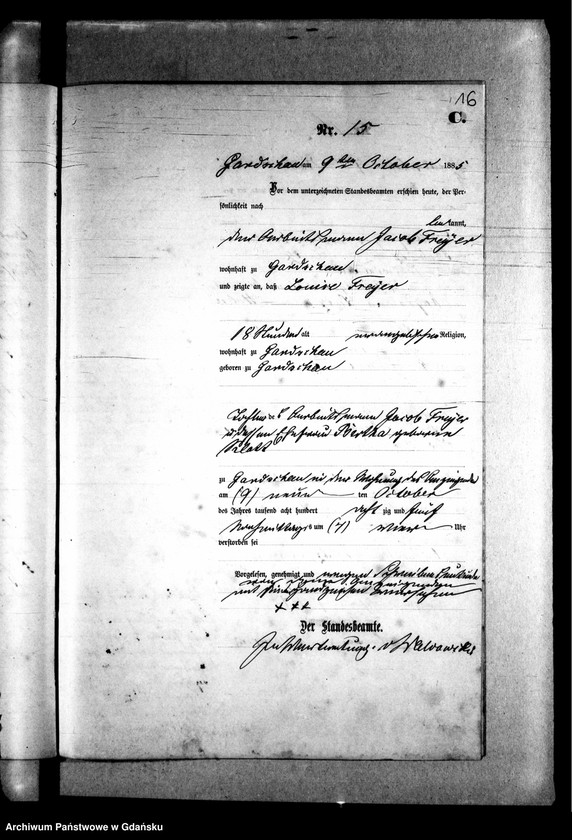 16
C.
Nr. 15
Gardschau am 9ten October 1885
Vor dem unterzeichneten Standesbeamten erschien heute, der Persönlichkeit nach
bekannt,
der Arbeitsmann Jacob Freyer
wohnhaft zu Gardschau
und zeigte an, daß Louise Freyer
18 Stunden alt evangelischer Religion,
wohnhaft zu Gardschau
geboren zu Gardschau
Tochter des Arbeitsmann Jacob Freyer
u dessen Ehefrau Bertha geborene
zu Gardschau in der Wohnung des
am (9) neun ten October
des Jahres tausend acht hundert acht zig und fünf
Nachmittags um Uhr
verstorben sei
Vorgelesen, genehmigt und wegen Schreibensunkunde
mit Handzeichen
+ + +
Der Standesbeamte.
In Vertretung.
Archiwum Państwowe w Gdańsku